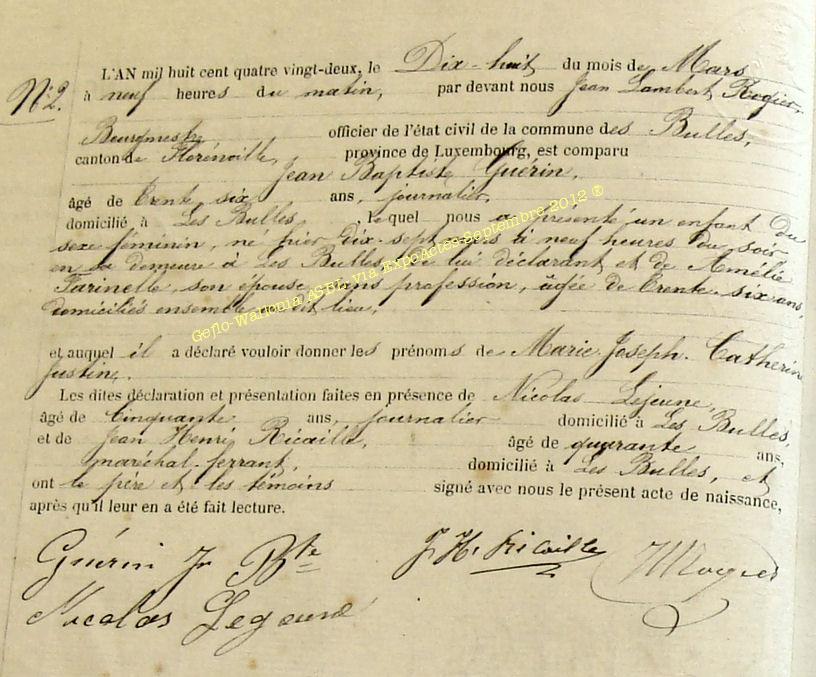 N° 2.
L'AN mil huit cent quatre vingt-deux, le Dix-huit du mois de Mars
à neuf heures du matin, par devant nous Jean Lambert Rogier,
Bourgmestre officier de l'état civil de la commune des Bulles,
canton de Florenville, province de Luxembourg, est comparu
Jean Baptiste Guérin,
âgé de trente six ans, journalier,
domicilié à Les Bulles, lequel nous a présenté un enfant du
sexe féminin, né hier dix-sept mars à neuf heures du soir,
en sa demeure à Les Bulles de lui déclarant et de Amélie
Tarinelle, son épouse, sans profession, âgée de trente-six ans,
domiciliés ensemble au dit lieu,
Geflo-Wallonia ASBL via ExpoActes-Septembre 2012 ®
et auquel il a déclaré vouloir donner les prénoms de Marie. Joseph. Catherine
Justine.
Les dites déclaration et présentation faites en présence de Nicolas Lejeune,
âgé de Cinquante ans, journalier domicilié à Les Bulles,
et de Jean Henri Ricaille, âgé de quarante ans,
maréchal-ferrant, domicilié à Les Bulles, et
ont le père et les témoins signé avec nous le présent acte de naissance,
après qu'il leur en a été fait lecture.
Guérin Jn Bte J H. Ricaille
Nicolas Legeune